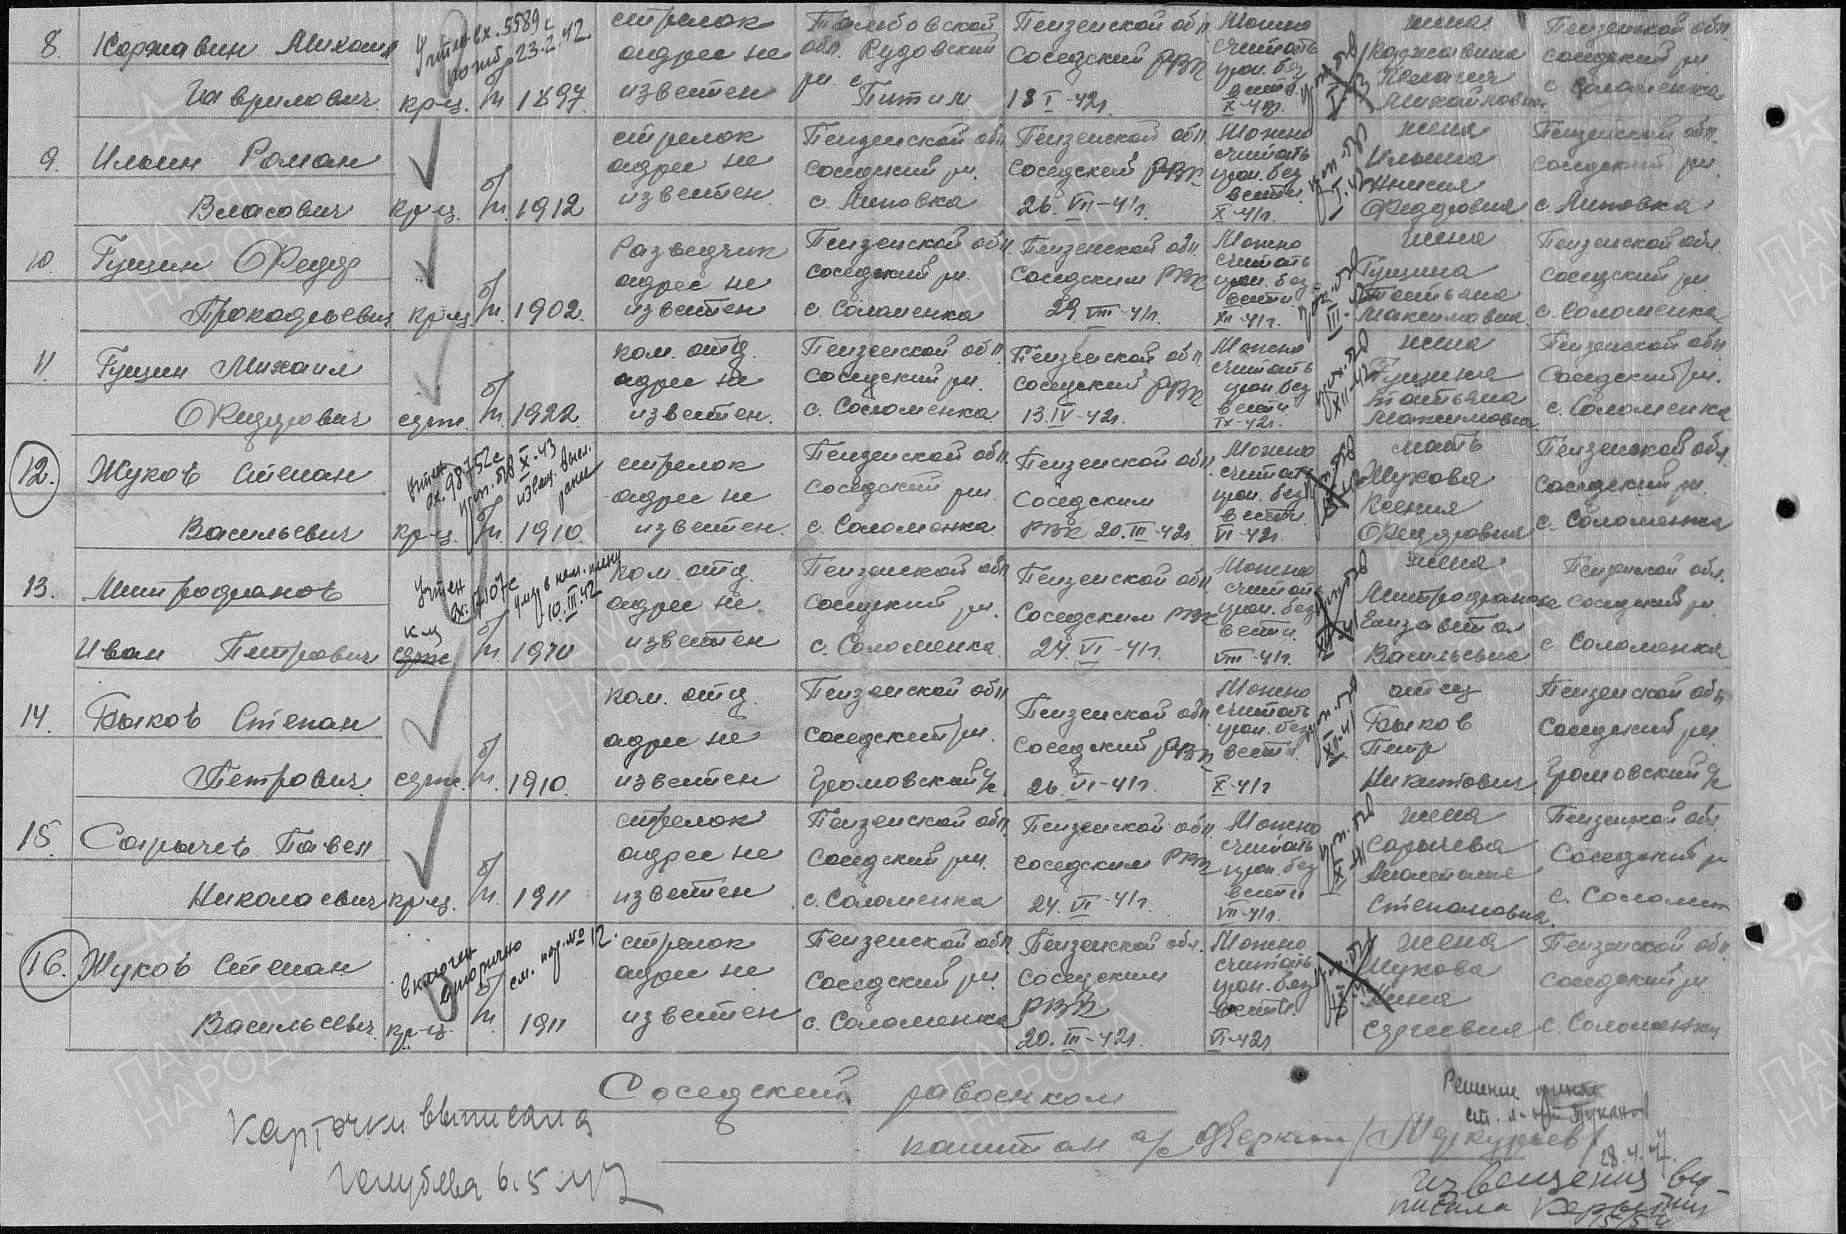 8. Коржавин Михаил
Гаврилович
кр-ц. б/п. 1897
погиб 23.2.42
стрелок
адрес не
известен
Тамбовской
обл. Рудовский
рн с.
Питим
Пензенской обл
Соседский РВК
18 I-42г.
Можно
считать
проп. без
вести
жена
Коржавина
Пелагия
Михайловна
Пензенской обл
соседский рн
с. Соломенка
9. Ильин Роман
Власович
кр-ц. б/п. 1912
стрелок
адрес не
известен.
Пензенской обл
соседский рн.
с. Липовка
Пензенской обл
соседский РВК
26. VII-41г.
Можно
считать
проп. без
вести.
X-41г.
жена
Ильина
Анисия
Федоровна
Пензенской обл.
соседский рн.
с. Липовка
10. Гущин Федор
кр-ц б/п. 1902.
Разведчик
адрес не
известен
Пензенской обл
соседский рн.
с. Соломенка
Пензенской обл.
Соседским РВК
29. VIII-41г.
Можно
считать
проп. без
вести.
XII-41г.
жена
Гущина
Татьяна
Максимовна
Пензенской обл.
соседский рн
с. Соломенка
11. Гущин Михаил
Федорович
серж. б/п. 1922
ком. отд.
адрес не
известен.
Пензенской обл
соседский рн.
с. Соломенка
Пензенской обл
соседский РВК
13. IV-42г.
Можно
считать
проп. без
вести
IX-42г.
жена
Гущина
Татьяна
Максимовна
Пензенской обл
Соседский рн.
с. Соломенка
12. Жуков Степан
Васильевич
кр-ц. б/п. 1910
учтен
вх. 98752с
стрелок
адрес не
известен.
Пензенской обл
соседский рн.
с. Соломенка
Пензенской обл.
Соседским
РВК 20. III-42г.
Можно
считать
проп. без
вести.
VI-42г.
мать
Жукова
Ксения
Федоровна
Пензенской обл.
соседский рн.
с. Соломенка
13. Митрофанов
Иван Петрович
учтен
умер в нем. плену
10. III. 42
ком. отд.
адрес не.
известен
Пензенской обл
соседский рн.
с. Соломенка
Пензенской обл
Соседским РВК
24. VI-41г.
Можно
считать
проп. без
вести.
VIII-41г.
жена
Митрофанова
Елизавета
Васильевна
Пензенской обл.
соседский рн
с. Соломенка
14. Быков Степан
Петрович
серж. б/п. 1910.
ком. отд.
адрес не
известен
Пензенской обл
соседский рн.
Громовский с/с
Пензенской обл
соседский РВК
26. VI-41г.
Можно
считать
проп. без
вести
X-41г
отец
Быков
Петр
Никитович
Пензенской обл
соседский рн.
Громовский с/с
15. Сарычев Павел
Николаевич
кр-ц. б/п. 1911
стрелок
адрес не
известен
Пензенской обл
соседский рн.
с. Соломенка
Пензенской обл
соседским РВК
24. VI-41г.
Можно
считать
проп. без
вести
VII-41г.
жена
Сарычева
Степановна
Пензенской обл
Соседский р
16. Жуков Степан
Васильевич
кр-ц. б/п. 1911
включен
вторично
см. пор. № 12.
стрелок
адрес не
известен
Пензенской обл
Соседский рн.
с. Соломенка
Пензенской обл.
Соседским
РВК
20. III-42г.
Можно
считать
проп. без
вести.
VI-42г
жена
Жукова
Пензенской обл
соседский рн
с. Соломенка
Соседский райвоенком
капитан а/с /Меркурьев/
28.4.47.
Карточки выписала
Голубева 6.5.47
Извещения вы-
писала
ПАМЯТЬ
НАРОДА